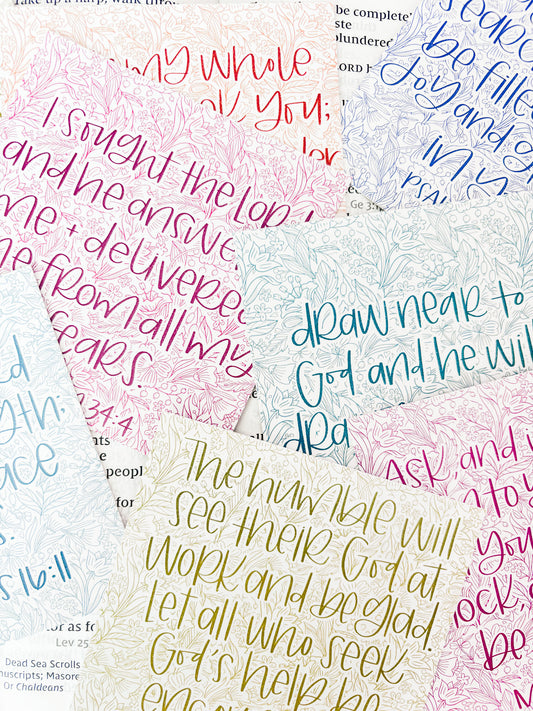 Take up a harp, walk thro
be complete
plundered
ORD h
my whole
k, you;
search
be filled
Joy and g
in y
PSAL
I sought the Lord
and he answe
me + delivered
me from all my
fears.
34:4
Ge 3:
draw near to
God and he will
dra
gth;
ace
s 16:11
nts
e
people
for
The humble will
see their God at
work and be glad.
Let all who seek
God's help be
Ask, and i
n to y
you
ock,
be
or as fo
Lev 25
Dead Sea Scrolls
nuscripts; Masore
Or Chaldeans